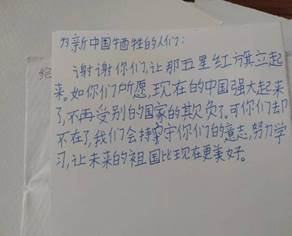 为新中国牺牲的人们：
谢谢你们，让那五星红旗立起
来。如你们所愿，现在的中国强大起来
了，不再受别的国家的欺负了。可你们却
不在了，我们会持守你们的意志，努力学
习，让未来的祖国比现在更美好。